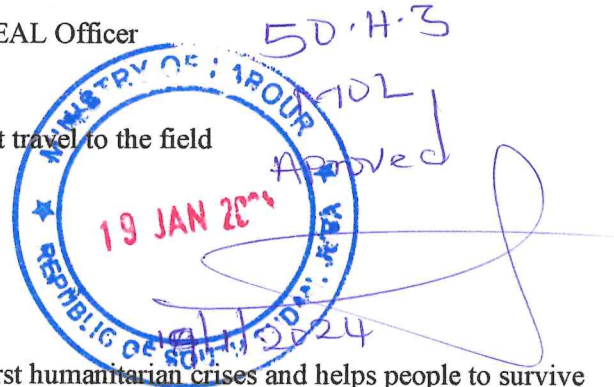 EAL Officer
5D.H.3
MOL
Approved
t travel to the field
MINISTRY OF LABOUR
19 JAN
REPUBLIC OF SOUTH SUDAN, JUBA
19/1/2024
rst humanitarian crises and helps people to survive